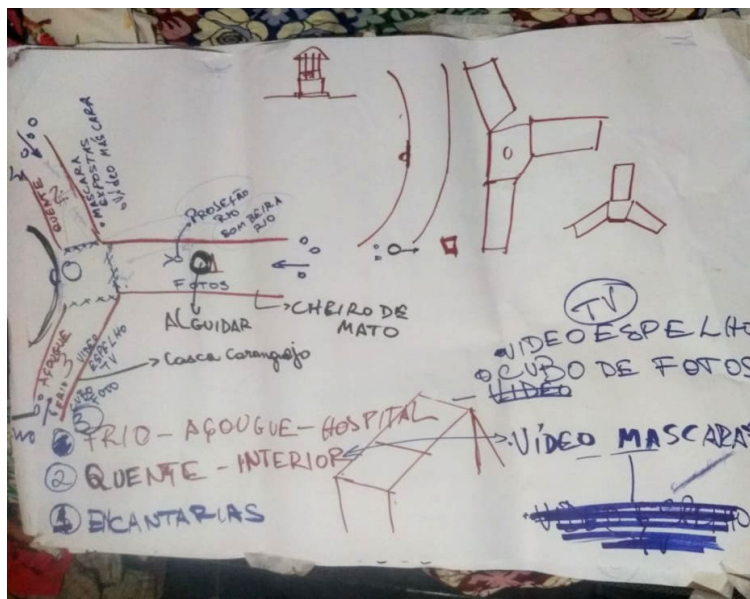 QUENTE
MASCARA
EXPOSTAS
VÍDEO MASCARA
PROJEÇÃO
RIO
SOM BEIRA
RIO
FOTOS
ALGUIDAR
CHEIRO DE
MATO
AÇOUGUE
FRIO
VIDEO
ESPELHO
TV
CUBO
FOTO
Casca Caranguejo
TV
VIDEO ESPELHO
CUBO DE FOTOS
VIDEO
VÍDEO MASCARAS
3 FRIO - AÇOUGUE - HOSPITAL
2 QUENTE - INTERIOR
1 ENCANTARIAS